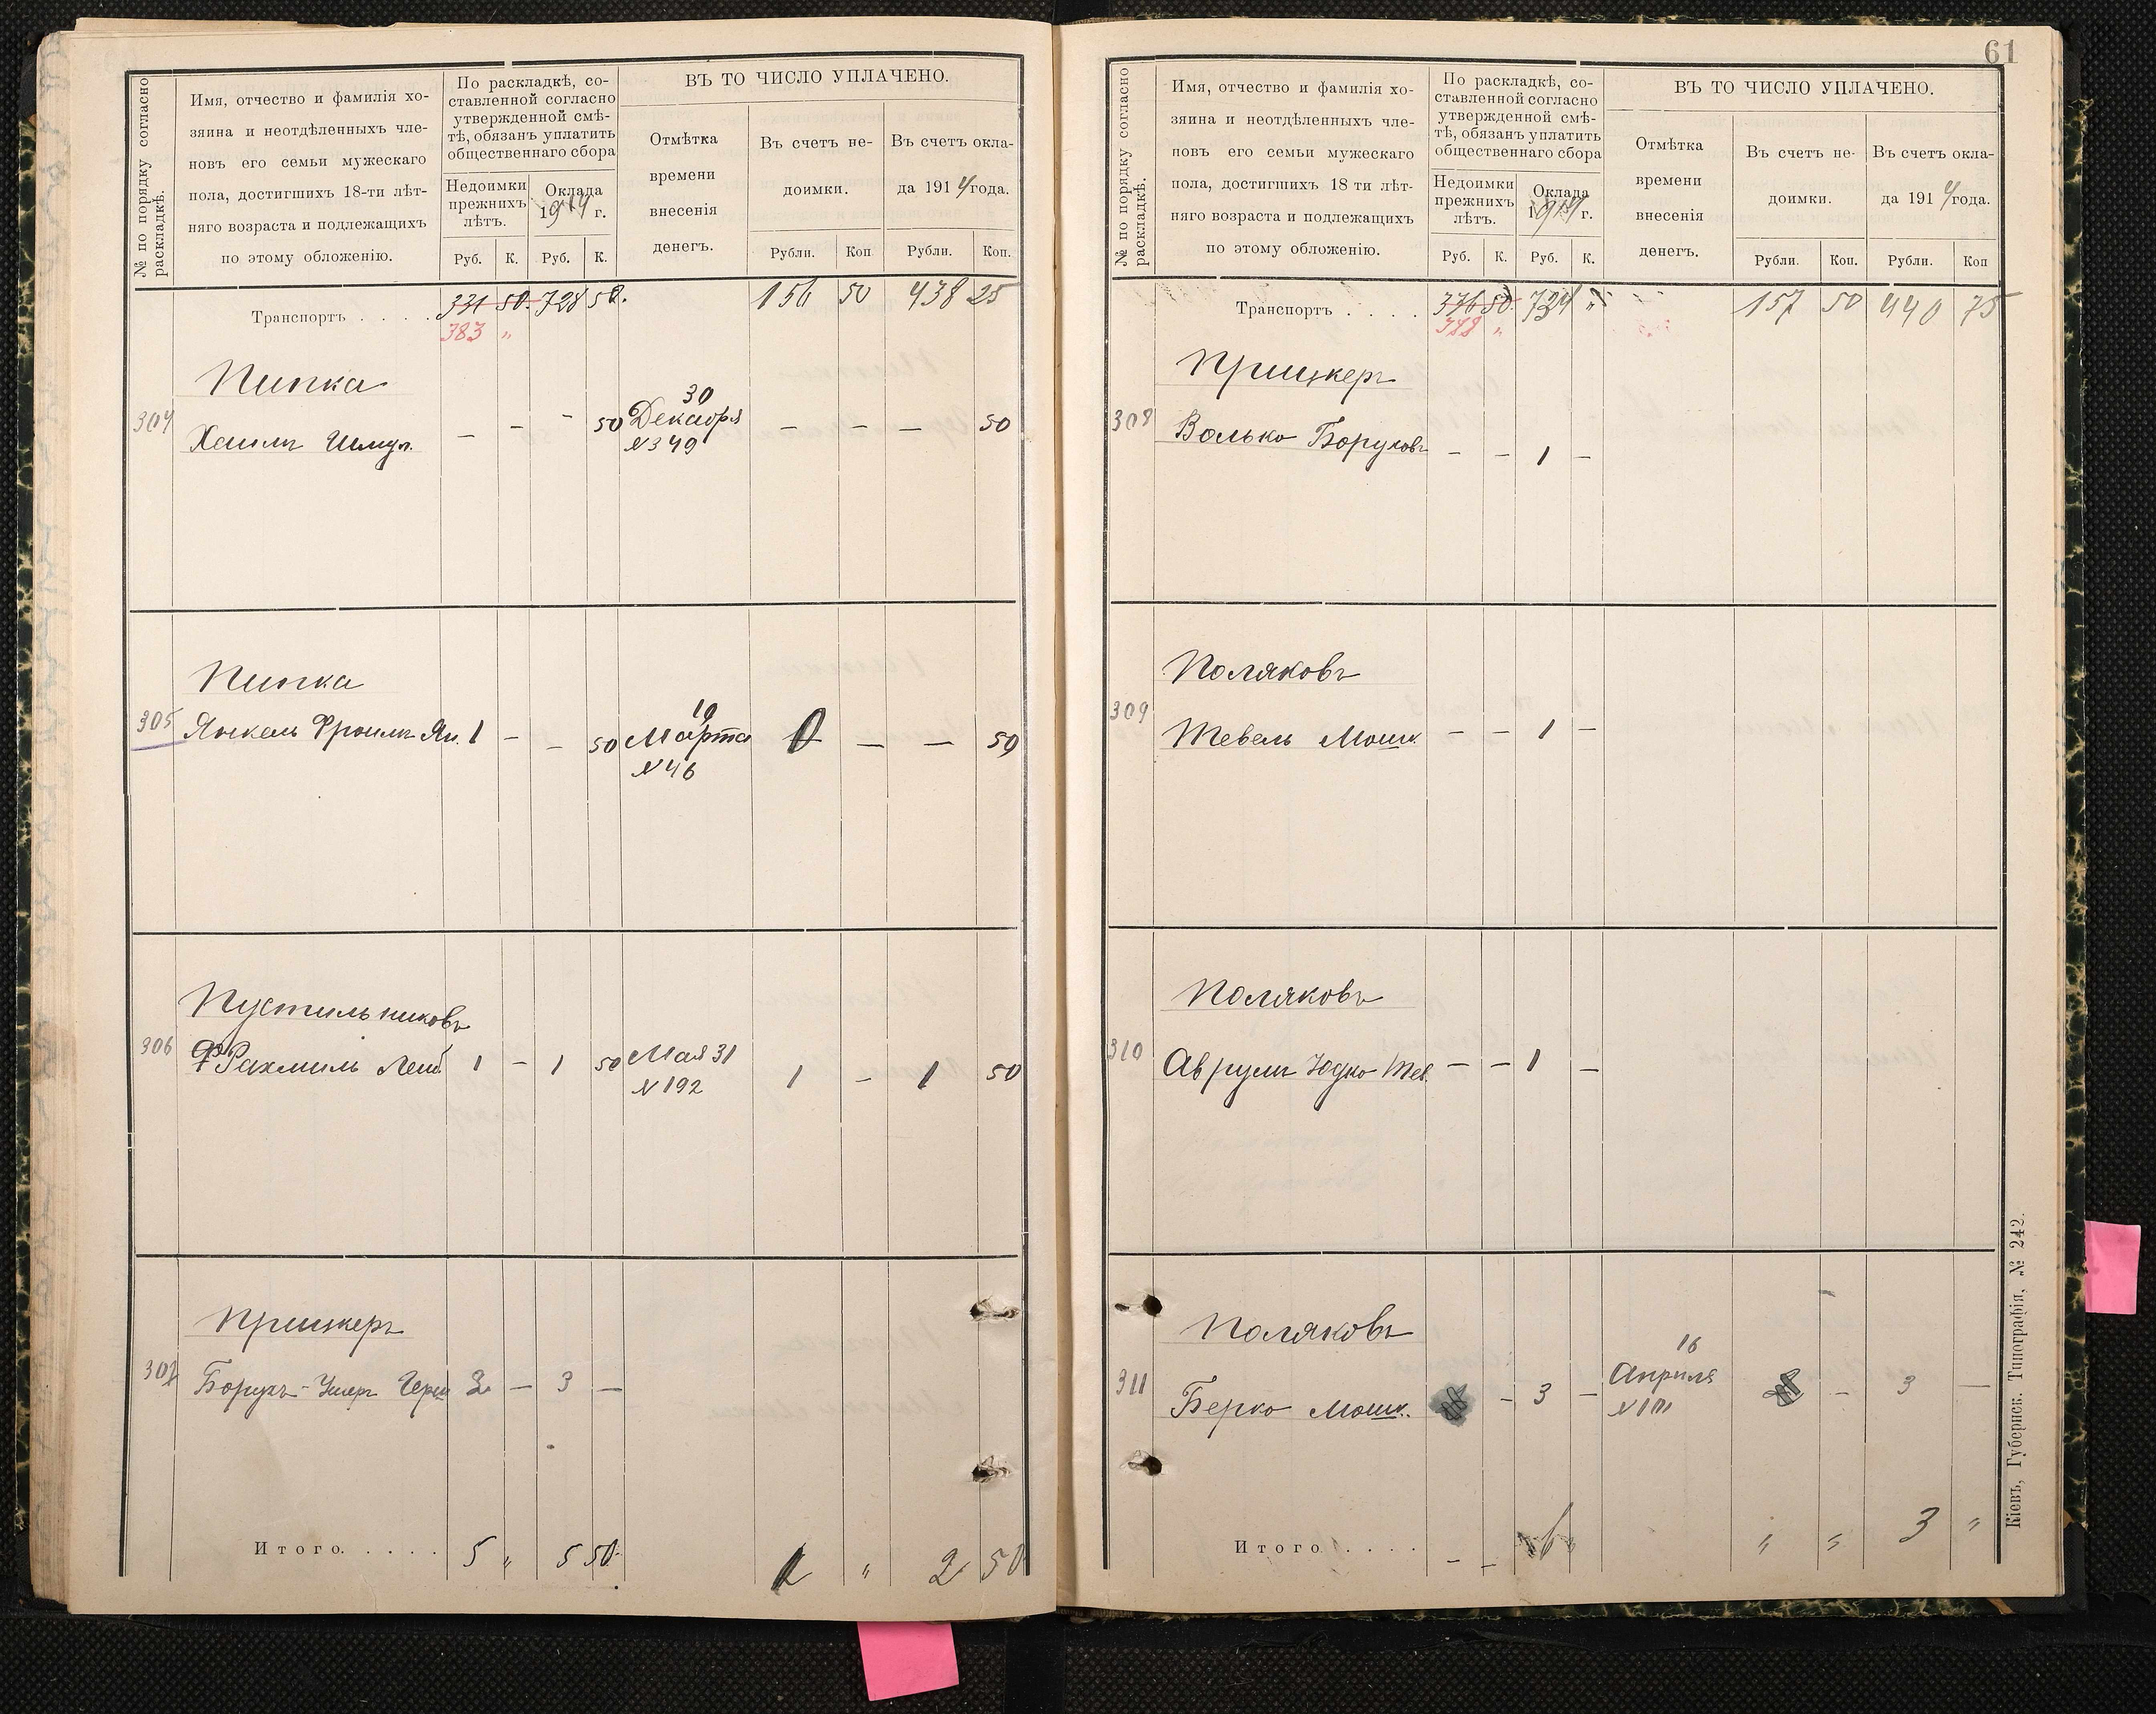 № по порядку согласно
раскладкѣ.
Имя, отчество и фамилія хо-
зяина и неотдѣленныхъ чле-
новъ его семьи мужескаго
пола, достигшихъ 18-ти лѣт-
няго возраста и подлежащихъ
по этому обложенію.
По раскладкѣ, со-
ставленной согласно
утвержденной смѣ-
тѣ, обязанъ уплатить
общественнаго сбора
Недоимки
прежнихъ
лѣтъ.
Оклада
1914 г.
Руб. К. Руб. К.
ВЪ ТО ЧИСЛО УПЛАЧЕНО.
Отмѣтка
времени
внесенія
денегъ.
Въ счетъ не-
доимки.
Въ счетъ окла-
да 1914 года.
Рубли. Коп Рубли. Коп.
Транспортъ . . . . 331 50. 728 50. 156 50 438 25
383 „
Пипка
30
304 Хаимъ Шмул. — — - 50 Декабря — — — 50
№349
Пипка
19
305 Янкель Фроимъ Ян. 1 — — 50 Марта — — 50
№46
Пустильниковъ
306 Рахмиль Лейб 1 — 1 50 Мая 31 1 — 1 50
№192
Прицкеръ
307 Борухъ-Ушеръ Герш 3 — 3 —
Итого. . . . . 5 „ 5 50. „ 2 50
61
№ по порядку согласно
раскладкѣ.
Имя, отчество и фамилія хо-
зяина и неотдѣленныхъ чле-
новъ его семьи мужескаго
пола, достигшихъ 18 ти лѣт-
няго возраста и подлежащихъ
по этому обложенію.
По раскладкѣ, со-
ставленной согласно
утвержденной смѣ-
тѣ, обязанъ уплатить
общественнаго сбора
Недоимки
прежнихъ
лѣтъ.
Оклада
1914 г.
Руб. К. Руб. К.
ВЪ ТО ЧИСЛО УПЛАЧЕНО.
Отмѣтка
времени
внесенія
денегъ.
Въ счетъ не-
доимки.
Въ счетъ окла-
да 1914 года.
Рубли. Коп. Рубли. Коп
Транспортъ . . . . 376 50. 734 „ 157 50 440 75
388 „
Прицкеръ
308 Волько Боруховъ — — 1 —
Поляковъ
309 Тевель Мошк. — — 1 —
Поляковъ
310 Аврумъ Юдко Тев. — — 1 —
Поляковъ
16
311 Берко Мошк. — 3 — Апрѣля — 3 —
Итого . . . . — — 6 „ „ „ 3 „
Кіевъ, Губернск. Типографія, № 242.